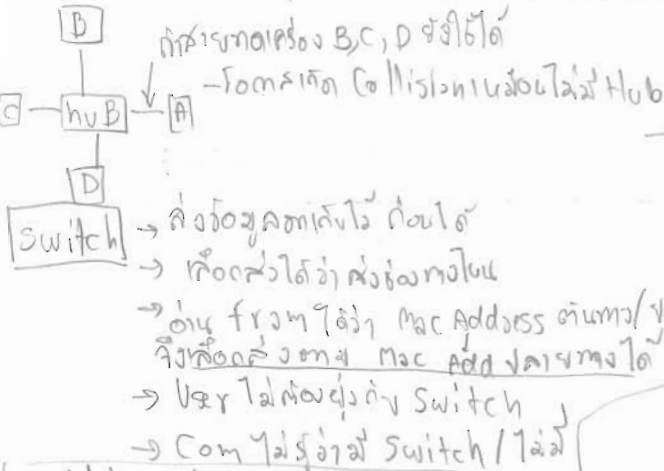 B
ถ้าสายขาดเครื่อง B, C, D ยังใช้ได้
- โอกาสเกิด Collision เหมือนไม่มี Hub
C
huB
A
D
Switch
→ ส่งข้อมูลมาเก็บไว้ ก่อนได้
→ เลือกส่งได้ว่า ส่งช่องทางไหน
→ อ่าน from ได้ว่า Mac Address ต้นทาง/
จึงเลือกส่งตาม Mac Add ปลายทางได้
→ User ไม่ต้องยุ่งกับ Switch
→ Com ไม่รู้ว่ามี Switch / ไม่มี